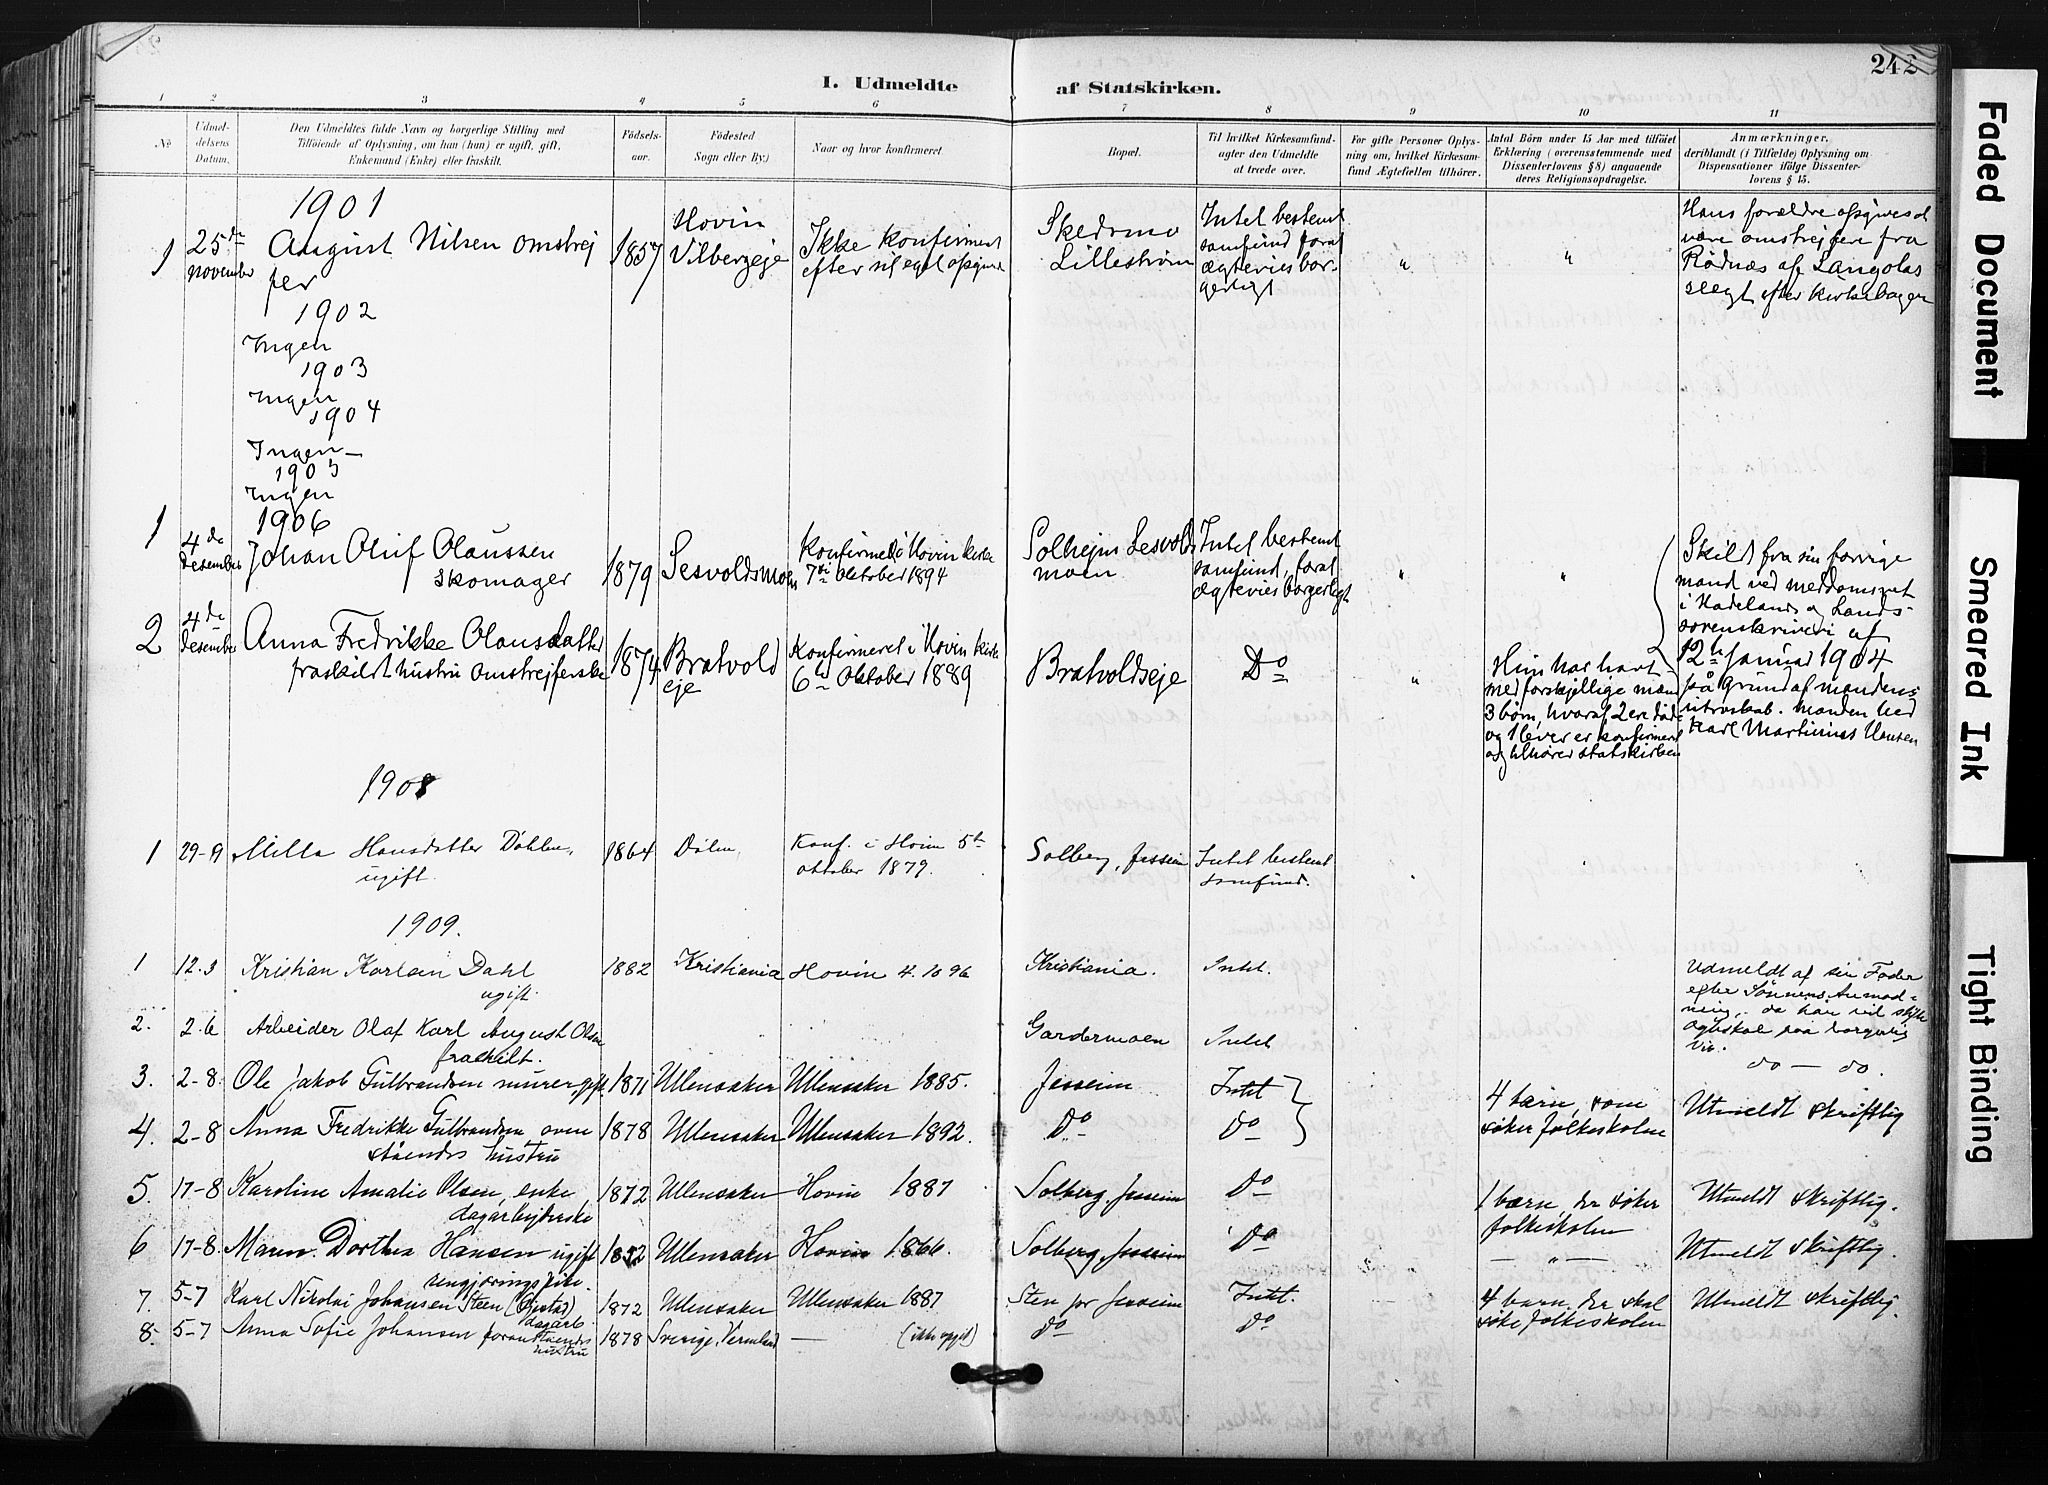 242
I. Udmeldte af Statskirken.
1 2 3 4 5 6 7 8 9 10 11
No
Udmel-
delsens
Datum.
Den Udmeldtes fulde Navn og borgerlige Stilling med
Tilføiende af Oplysning, om han (hun) er ugift, gift,
Enkemand (Enke) eller fraskilt.
Fødsels-
aar.
Fødested
Sogn eller By.)
Naar og hvor konfirmeret.
Bopæl.
Til hvilket Kirkesamfund-
agter den Udmeldte
at træde over.
For gifte Personer Oplys-
ning om, hvilket Kirkesam-
fund Ægtefællen tilhører.
Antal Börn under 15 Aar med tilföiet
Erklæring (overensstemmende med
Dissenterlovens § 8) angaaende
deres Religionsopdragelse.
Anmærkninger,
deriblandt (i Tilfælde) Oplysning om
Dispensationer ifölge Dissenter-
lovens § 15.
1901
1
25de
november
August Nilsen omstrej
fer
1857
Hovin
Vilbergeje
Ikke konfirmert
efter sit eget opgivende
Skedsmo
Lillestrøm
Intet bestemt
samfund forat
ægtevies bor-
gerligt
"
"
Hans forældre opgives at
være omstrejfere fra
Rødnæs af Langolas
slegt efter kirkebogen
1902
Ingen
1903
Ingen
1904
Ingen —
1905
Ingen
1906
1
4de
Desember
Johan Oluf Olaussen
skomager
1879
Sesvoldsmoen
Konfirmert i Hovin kirke
7de Oktober 1894
Solhejm Sesvolds
moen
Intet bestemt
samfund, forat
ægtevies borgerligt
"
"
Skilt fra sin forrige
mand ved meddomsret
i Hadeland og Lands
sorenskriveri af
12te Januar 1904
på grund af mandens
utroskab. Manden hed
Karl Martinius Hansen
2
4de
Desember
Anna Fredrikke Olausdatter
fraskildt hustru omstrejferske
1874
Bratvold
eje
Konfirmeret i Hovin kirke
6te Oktober 1889
Bratvoldseje
Do
"
Hun har havt
med forskjellige mænd
3 børn, hvoraf 2 ere døde
og 1 lever er konfirmert
og tilhører statskirken
1908
1
29-9
Milla Hansdatter Döhlen,
ugift.
1864
Dølen,
Konf. i Hovin 5te
oktober 1879.
Solberg, Jesseim
Intet bestemt
samfund.
1909.
1
12.3
Kristian Karlsen Dahl
ugift.
1882
Kristiania
Hovin 4.10 96
Kristiania.
Intet.
Udmeldt af sin Fader
efter Sønnens Anmod-
ning, da han vil stifte
Ægteskab paa borgerlig
Vis.
2.
2.6
Arbeider Olaf Karl August Olsen
fraskilt.
Gardermoen
Intet
do — do.
3.
2-8.
Ole Jakob Gulbrandsen murer, gift
1871
Ullensaker
Ullensaker 1885.
Jesseim
Intet
4 bærn, som
søker folkeskolen
Utmeldt skriftlig
4.
2-8
Anna Fredrikke Gulbrandsen oven
ståendes hustru
1878
Ullensaker
Ullensaker 1892.
Do
Do
5.
17-8
Karoline Amalie Olsen, enke,
dagarbejderske
1872
Ullensaker
Hovin 1887
Solberg, Jesseim
Do
1 bærn, der søker
folkeskolen
Utmeldt skriftlig.
6
17-8.
Maren Dorthea Hansen ugift
rengjøringspike
Ullensaker
Hovin 1866.
Solberg, Jesseim
Do
— " —
Utmeldt skriftlig.
7.
5-7
Karl Nikolai Johansen Steen (Gjestad)
dagarb.
1872
Ullensaker
Ullensaker 1887
Sten pr Jesseim
Intet.
4 bærn, der skal
søke folkeskolen
Utmeldt skriftlig.
8.
5-7
Anna Sofie Johansen foran-
ståendes
hustru
1878
Sverige, Vermland
— (ikke opgit)
Do
Do
Faded Document
Smeared Ink
Tight Binding